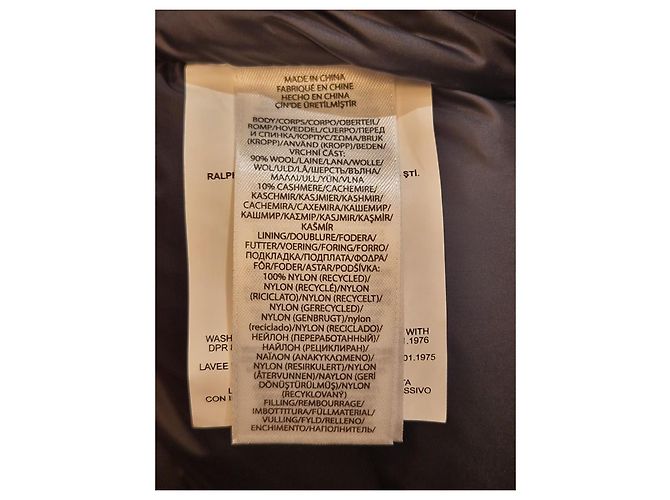 MADE IN CHINA
FABRIQUÉ EN CHINE
HECHO EN CHINA
ÇİN'DE ÜRETİLMİŞTİR
BODY/CORPS/CORPO/OBERTEIL/
ROMP/HOVEDDEL/CUERPO/ПЕРЕД
И СПИНКА/КОРПУС/ΣΩΜΑ/BRUK
(KROPP)/ANVÄND (KROPP)/BEDEN/
VRCHNÍ ČÁST:
90% WOOL/LAINE/LANA/WOLLE/
WOL/ULD/LÃ/ШЕРСТЬ/ВЪЛНА/
ΜΑΛΛΙ/ULL/YÜN/VLNA
10% CASHMERE/CACHEMIRE/
KASCHMIR/KASJMIER/KASHMIR/
CACHEMIRA/CAXEMIRA/КАШЕМИР/
КАШМИР/ΚΑΣΜΙΡ/KASJMIR/KAŞMİR/
KAŠMÍR
LINING/DOUBLURE/FODERA/
FUTTER/VOERING/FORING/FORRO/
ПОДКЛАДКА/ПОДПЛАТА/ΦΟΔΡΑ/
FÔR/FODER/ASTAR/PODŠÍVKA:
100% NYLON (RECYCLED)/
NYLON (RECYCLÉ)/NYLON
(RICICLATO)/NYLON (RECYCELT)/
NYLON (GERECYCLED)/
NYLON (GENBRUGT)/nylon
(reciclado)/NYLON (RECICLADO)/
НЕЙЛОН (ПЕРЕРАБОТАННЫЙ)/
НАЙЛОН (РЕЦИКЛИРАН)/
ΝΑΪΛΟΝ (ΑΝΑΚΥΚΛΩΜΕΝΟ)/
NYLON (RESIRKULERT)/NYLON
(ÅTERVUNNEN)/NAYLON (GERİ
DÖNÜŞTÜRÜLMÜŞ)/NYLON
(RECYKLOVANÝ)
FILLING/REMBOURRAGE/
IMBOTTITURA/FÜLLMATERIAL/
VULLING/FYLD/RELLENO/
ENCHIMENTO/НАПОЛНИТЕЛЬ/
RALPH
ŞTİ.
WASH WITH
DPR .1976
LAVEE 01.1975
CON SSIVO